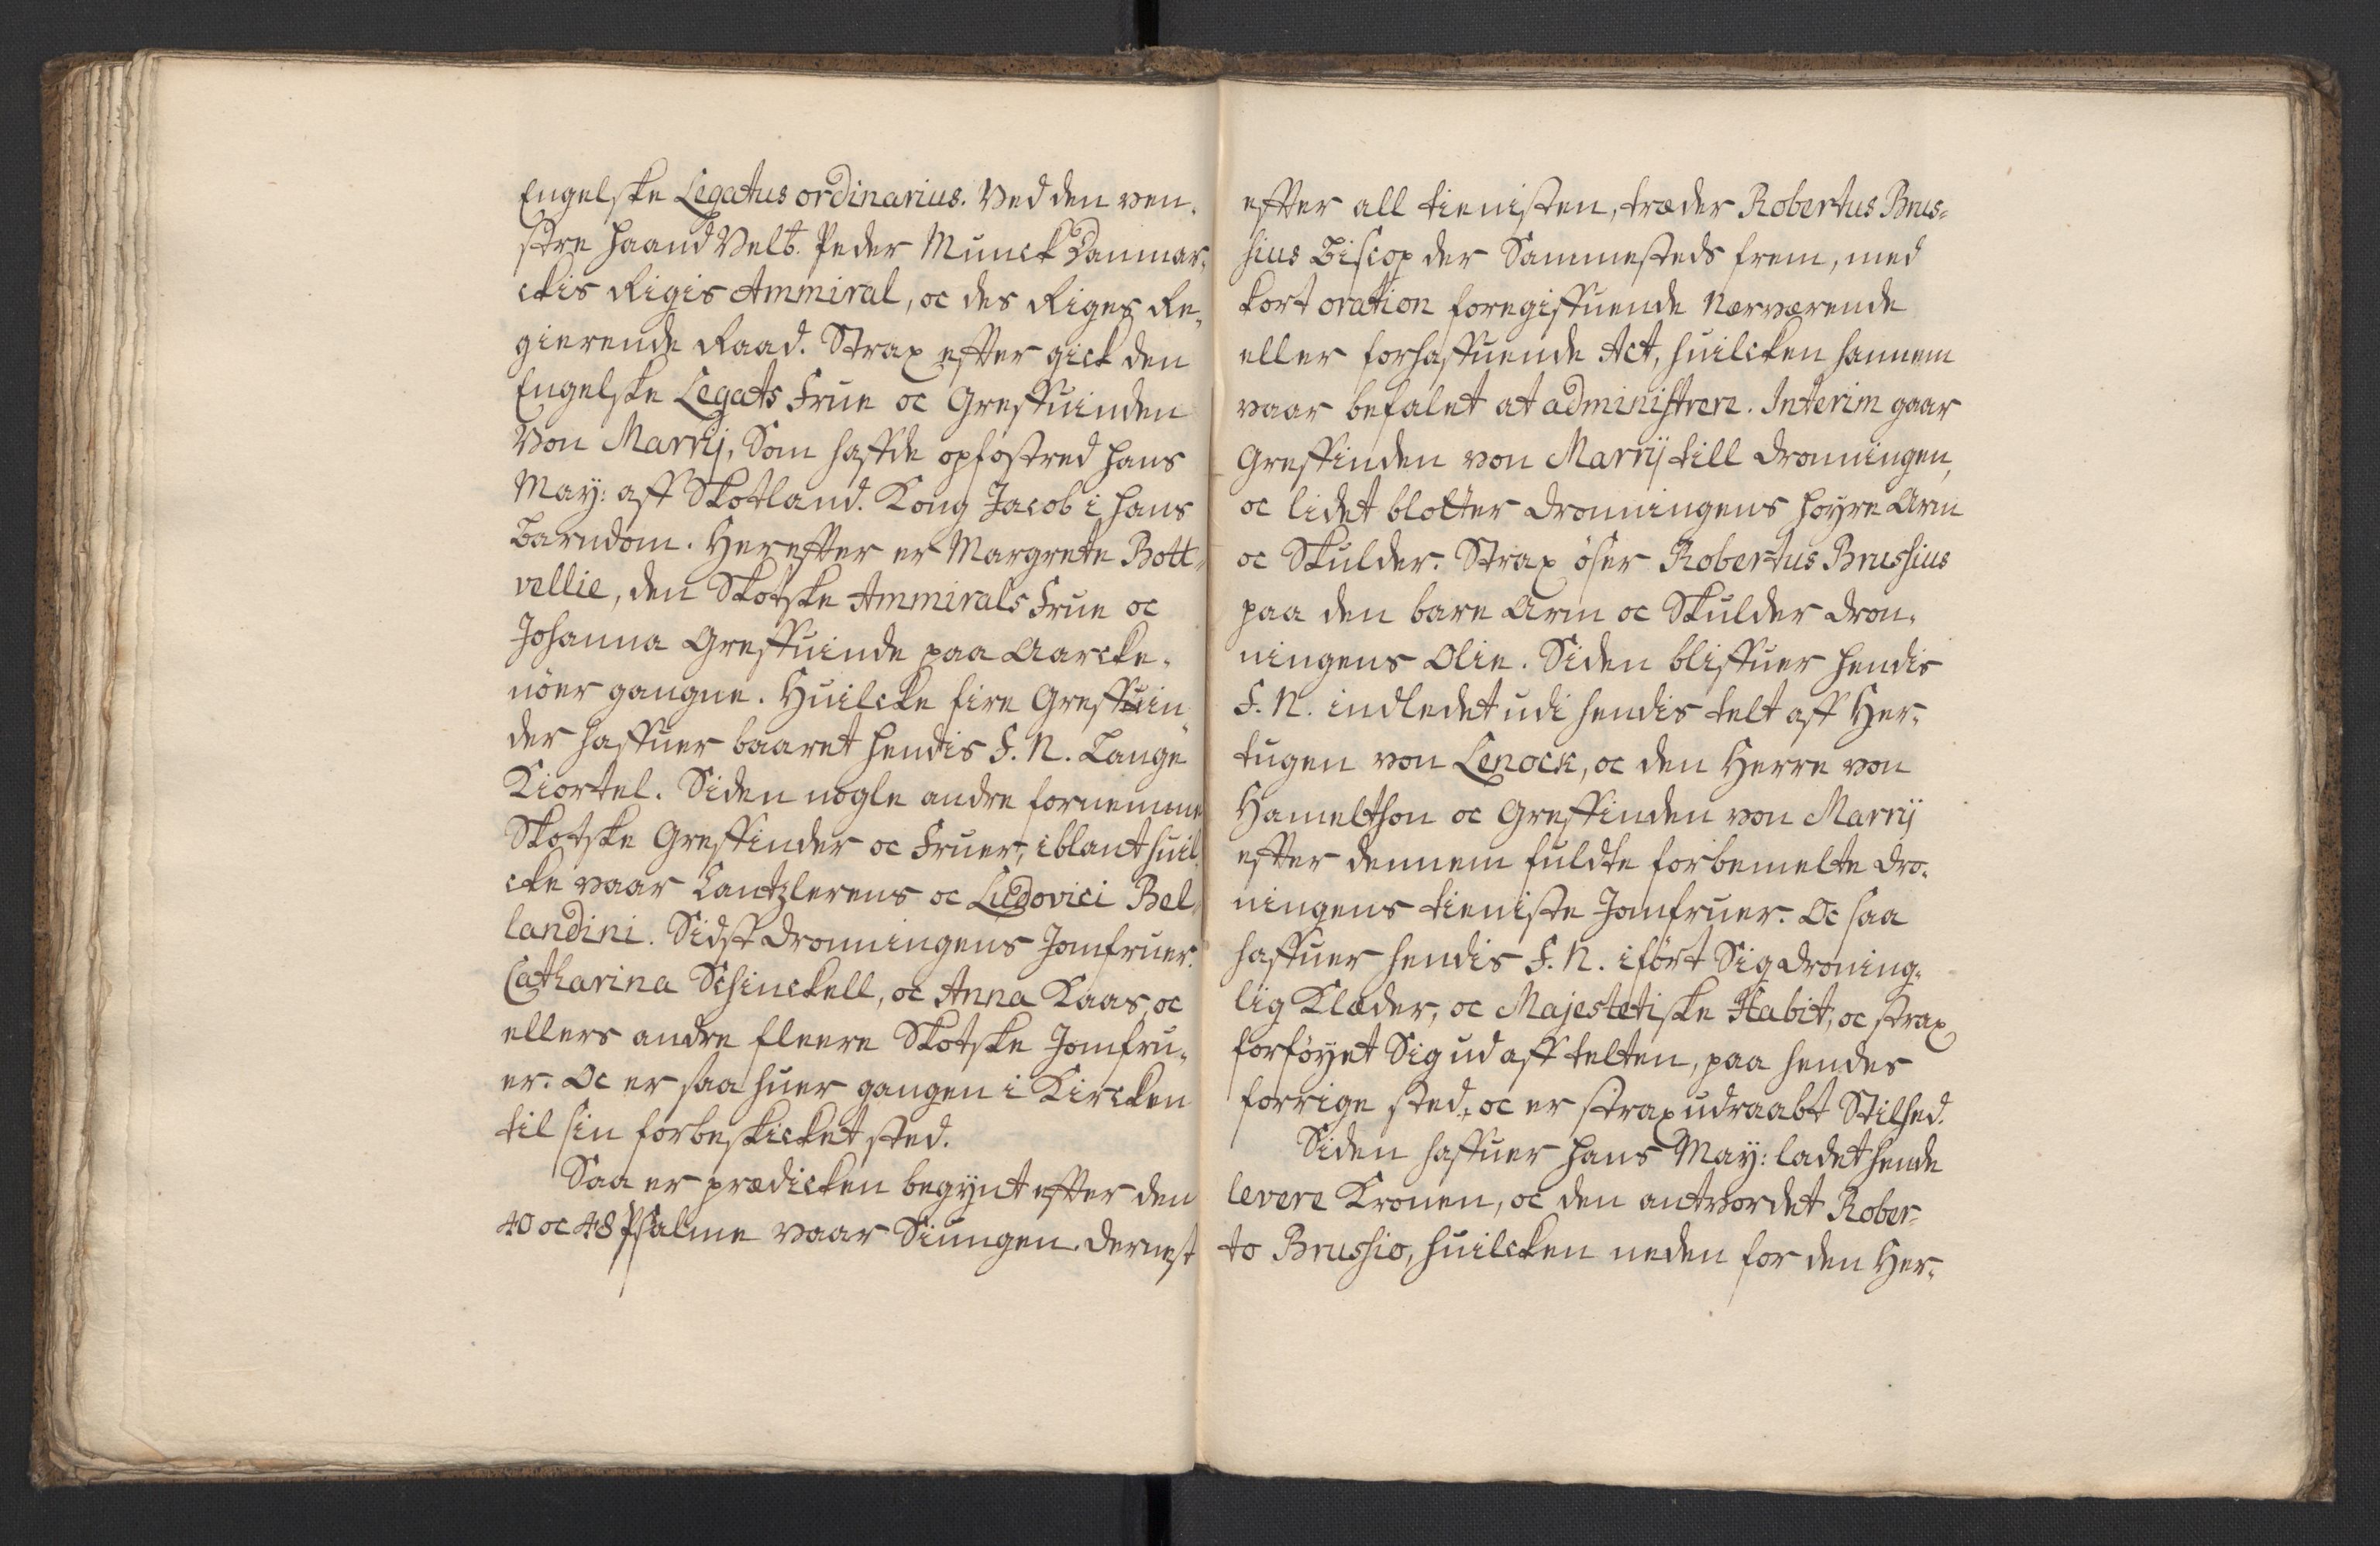 Engelske Legatus ordinarius. Ved den ven-
stre Haand Velb. Peder Munck Danmar-
ckis Rigis Ammiral, oc des Riges Re-
gierende Raad. Strax effter gick den
Engelske Legats Frue oc Greffuinden
Von Marrij, Som haffde opfostred hans
May: aff Skotland. Kong Jacob i hans
Barndom. Hereffter er Margrete Bott-
vellie, den Skotske Ammirals Frue oc
Johanna Greffuinde paa Aarcke-
nöer gangne. Huilcke fire Greffuin-
der haffuer baaret hendis F. N. Lange
Kiortel. Siden nogle andre fornemme
Skotske Greffinder oc Fruer, iblant huil-
cke vaar Cantzlerens oc Ludovici Bel-
landini. Sidst Dronningens Jomfruer.
Catharina Schinckell, oc Anna Kaas, oc
ellers andre fleere Skotske Jomfru-
er. Oc er saa huer gangen i Kircken
til sin forbeskicket sted.
Saa er prædicken begynt effter den
40 oc 48 Psalme vaar Siungen. Dernest
effter all tienisten, træder Robertus Brus-
sius Biscop der Sammesteds frem, med
kort oration foregiffuende Nærværende
eller forhaffuende Act, huilcken hannem
vaar befalet at administrere. Interim gaar
Greffinden von Marrij till Dronningen,
oc lidet blotter Dronningens høyre Arm
oc Skulder. Strax öser Robertus Brussius
paa den bare Arm oc Skulder Dron-
ningens Olie. Siden bliffuer hendis
F. N. indledet udi hendis telt aff Her-
tugen von Lenock, oc den Herre von
Hamelthon oc Greffinden von Marrij
effter dennem fuldte forbemelte Dro-
ningens tieniste Jomfruer. Oc saa
haffuer hendis F. N. iført Sig Droning-
lig Klæder, oc Majestetiske Habit, oc strax
forföyet Sig ud aff telten, paa hendes
forrige sted, oc er strax udraabt Stilhed.
Siden haffuer hans May: ladet hende
levere Kronen, oc den antvordet Rober-
to Brussio, huilcken neden for den Her-